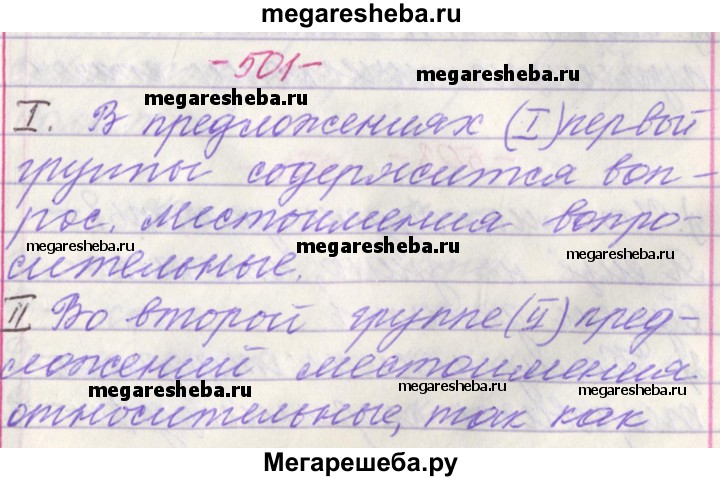 megaresheba.ru
-501-
megaresheba.ru
megaresheba.ru
I. В предложениях (I) первый
группы содержится воп-
рос. Местоимения вопро-
megaresheba.ru
megaresheba.ru
megaresheba.ru
сительные.
II Во второй группе (II) пред-
ложений местоимения
megaresheba.ru
megaresheba.ru
megaresheba.ru
относительные, так как
Мегарешеба.ру